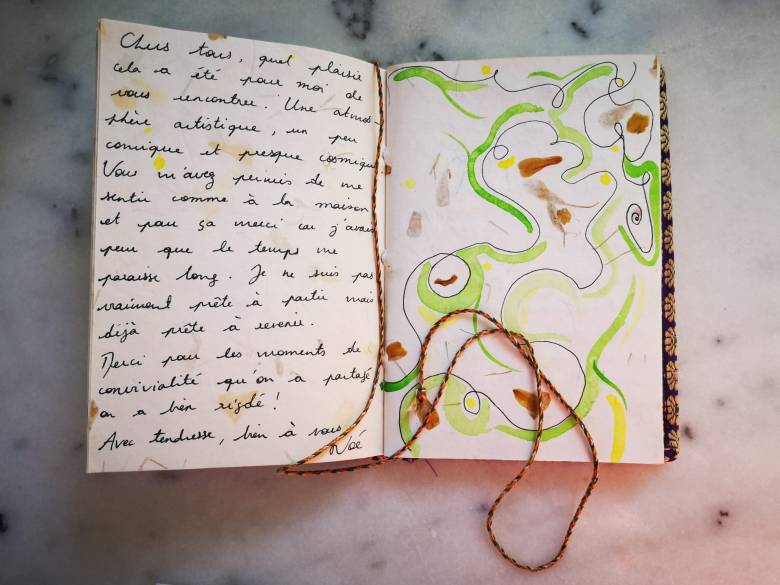 Chers tous, quel plaisir
cela a été pour moi de
vous rencontrer. Une atmos-
phère artistique, un peu
comique et presque cosmique
Vous m'avez permis de me
sentir comme à la maison
et pour ça merci car j'avais
peur que le temps me
paraisse long. Je ne suis pas
vraiment prête à partir mais
déjà prête à revenir.
Merci pour les moments de
convivialité qu'on a partagé
on a bien rigolé !
Avec tendresse, bien à vous
Noé